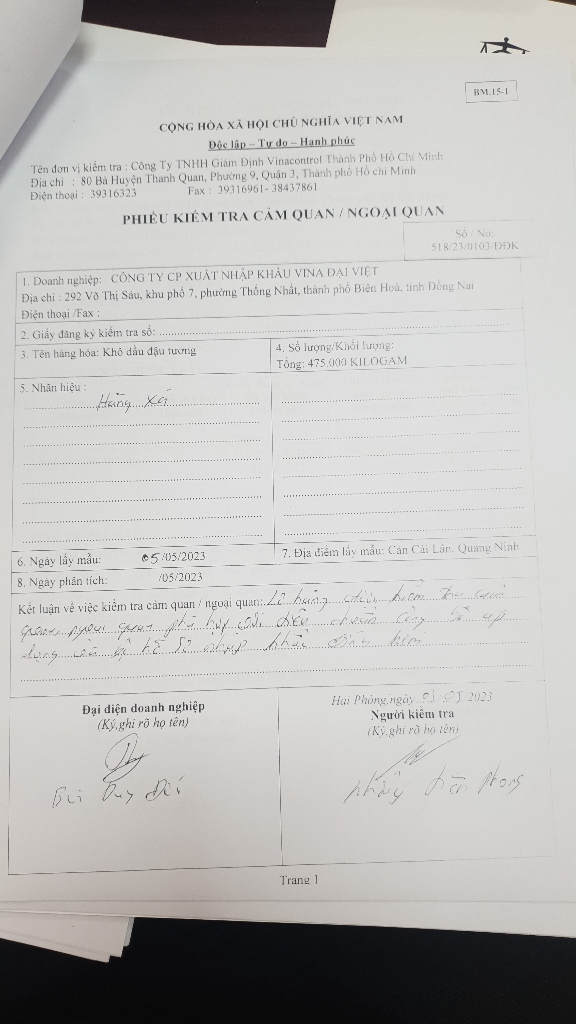 BM.15-1
CỘNG HÒA XÃ HỘI CHỦ NGHĨA VIỆT NAM
Độc lập – Tự do – Hạnh phúc
Tên đơn vị kiểm tra : Công Ty TNHH Giám Định Vinacontrol Thành Phố Hồ Chí Minh
Địa chỉ : 80 Bà Huyện Thanh Quan, Phường 9, Quận 3, Thành phố Hồ chí Minh
Điện thoại : 39316323 Fax : 39316961- 38437861
PHIẾU KIỂM TRA CẢM QUAN / NGOẠI QUAN
Số / No:
518/23/0103/ĐĐK
1. Doanh nghiệp: CÔNG TY CP XUẤT NHẬP KHẨU VINA ĐẠI VIỆT
Địa chỉ : 292 Võ Thị Sáu, khu phố 7, phường Thống Nhất, thành phố Biên Hoà, tỉnh Đồng Nai
Điện thoại /Fax :
2. Giấy đăng ký kiểm tra số:
3. Tên hàng hóa: Khô dầu đậu tương
4. Số lượng/Khối lượng:
Tổng: 475.000 KILOGAM
5. Nhãn hiệu :
Hàng xá
6. Ngày lấy mẫu: 05/05/2023
7. Địa điểm lấy mẫu: Cảng Cái Lân, Quảng Ninh
8. Ngày phân tích: /05/2023
Kết luận về việc kiểm tra cảm quan / ngoại quan: Lô hàng được kiểm tra cảm
quan, ngoại quan phù hợp với tiêu chuẩn công bố áp
dụng của bộ hồ sơ nhập khẩu
Đại diện doanh nghiệp
(Ký,ghi rõ họ tên)
Hải Phòng,ngày 05/05/2023
Người kiểm tra
(Ký,ghi rõ họ tên)
Bùi Duy
Phong
Trang 1